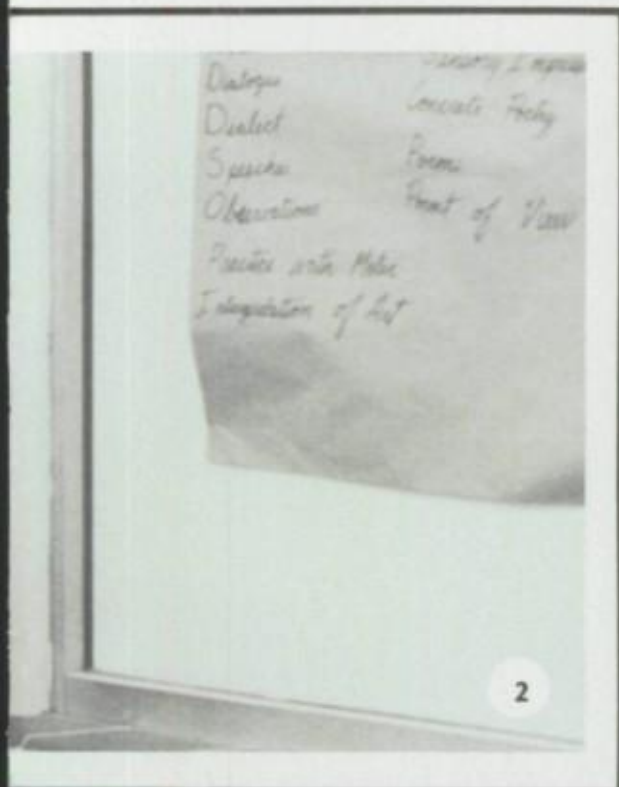 Dialogue
Dialect
Speeches
Observations
Practice with
of Art
Sensory
Concrete Poetry
Poems
Point of View
2